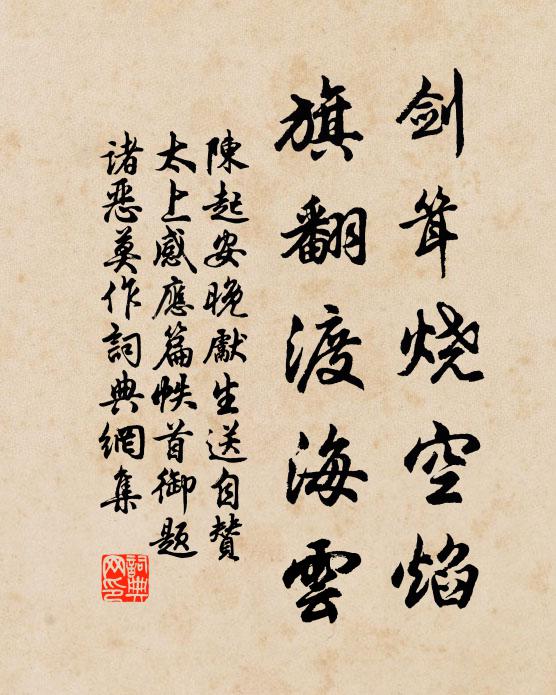 剑耸烧空焰
旗翻渡海雲
陳起安晚獻生送自贊
太上感應篇帙首御題
諸惡莫作詞典網集
詞典网印